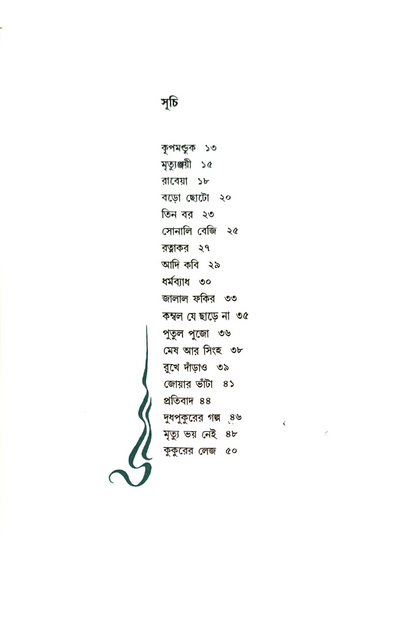 সূচি
কূপমন্ডুক ১৩
মৃত্যুঞ্জয়ী ১৫
রাবেয়া ১৮
বড়ো ছোটো ২০
তিন বর ২৩
সোনালি বেজি ২৫
রত্নাকর ২৭
আদি কবি ২৯
ধর্মব্যাধ ৩০
জালাল ফকির ৩৩
কম্বল যে ছাড়ে না ৩৫
পুতুল পুজো ৩৬
মেষ আর সিংহ ৩৮
রুখে দাঁড়াও ৩৯
জোয়ার ভাঁটা ৪১
প্রতিবাদ ৪৪
দুধপুকুরের গল্প ৪৬
মৃত্যু ভয় নেই ৪৮
কুকুরের লেজ ৫০